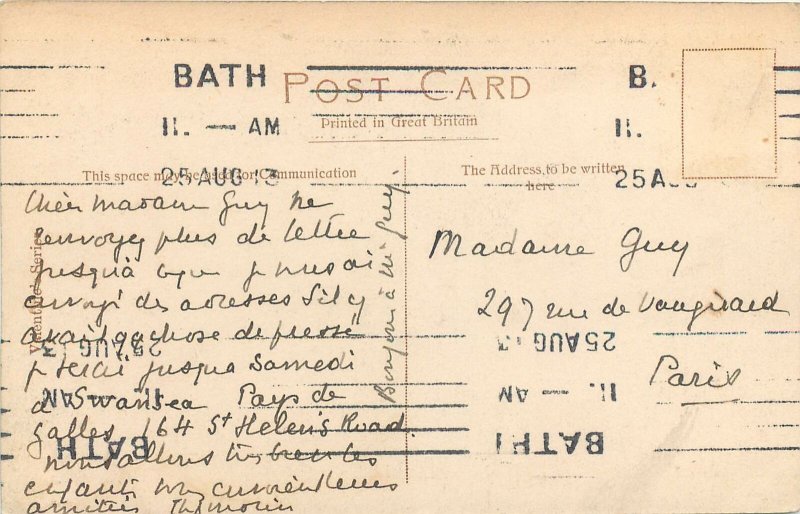 BATH
POST CARD
B.
11. — AM
Printed in Great Britain
11.
This space may be used for Communication
The Address to be written
here
25 AUG 13
25 A
Valentine's Series
Chèr madame Guy ne
envoyez plus de lettre
jusqu'à que je vous ai
envoyé des adresses Sil y
avait qqchose de pressé
je serai jusqua Samedi
à Swansea Pays de
galles 164 St Helen's Road.
nous allons très bien les
enfants vous envoient leurs
amitiés Th morin
Bonjour à Mr Guy.
Madame Guy
297 rue de Vaugirard
Paris
25 AUG 13
11. — AM
BATH
25 AUG 13
11. — AM
BATH